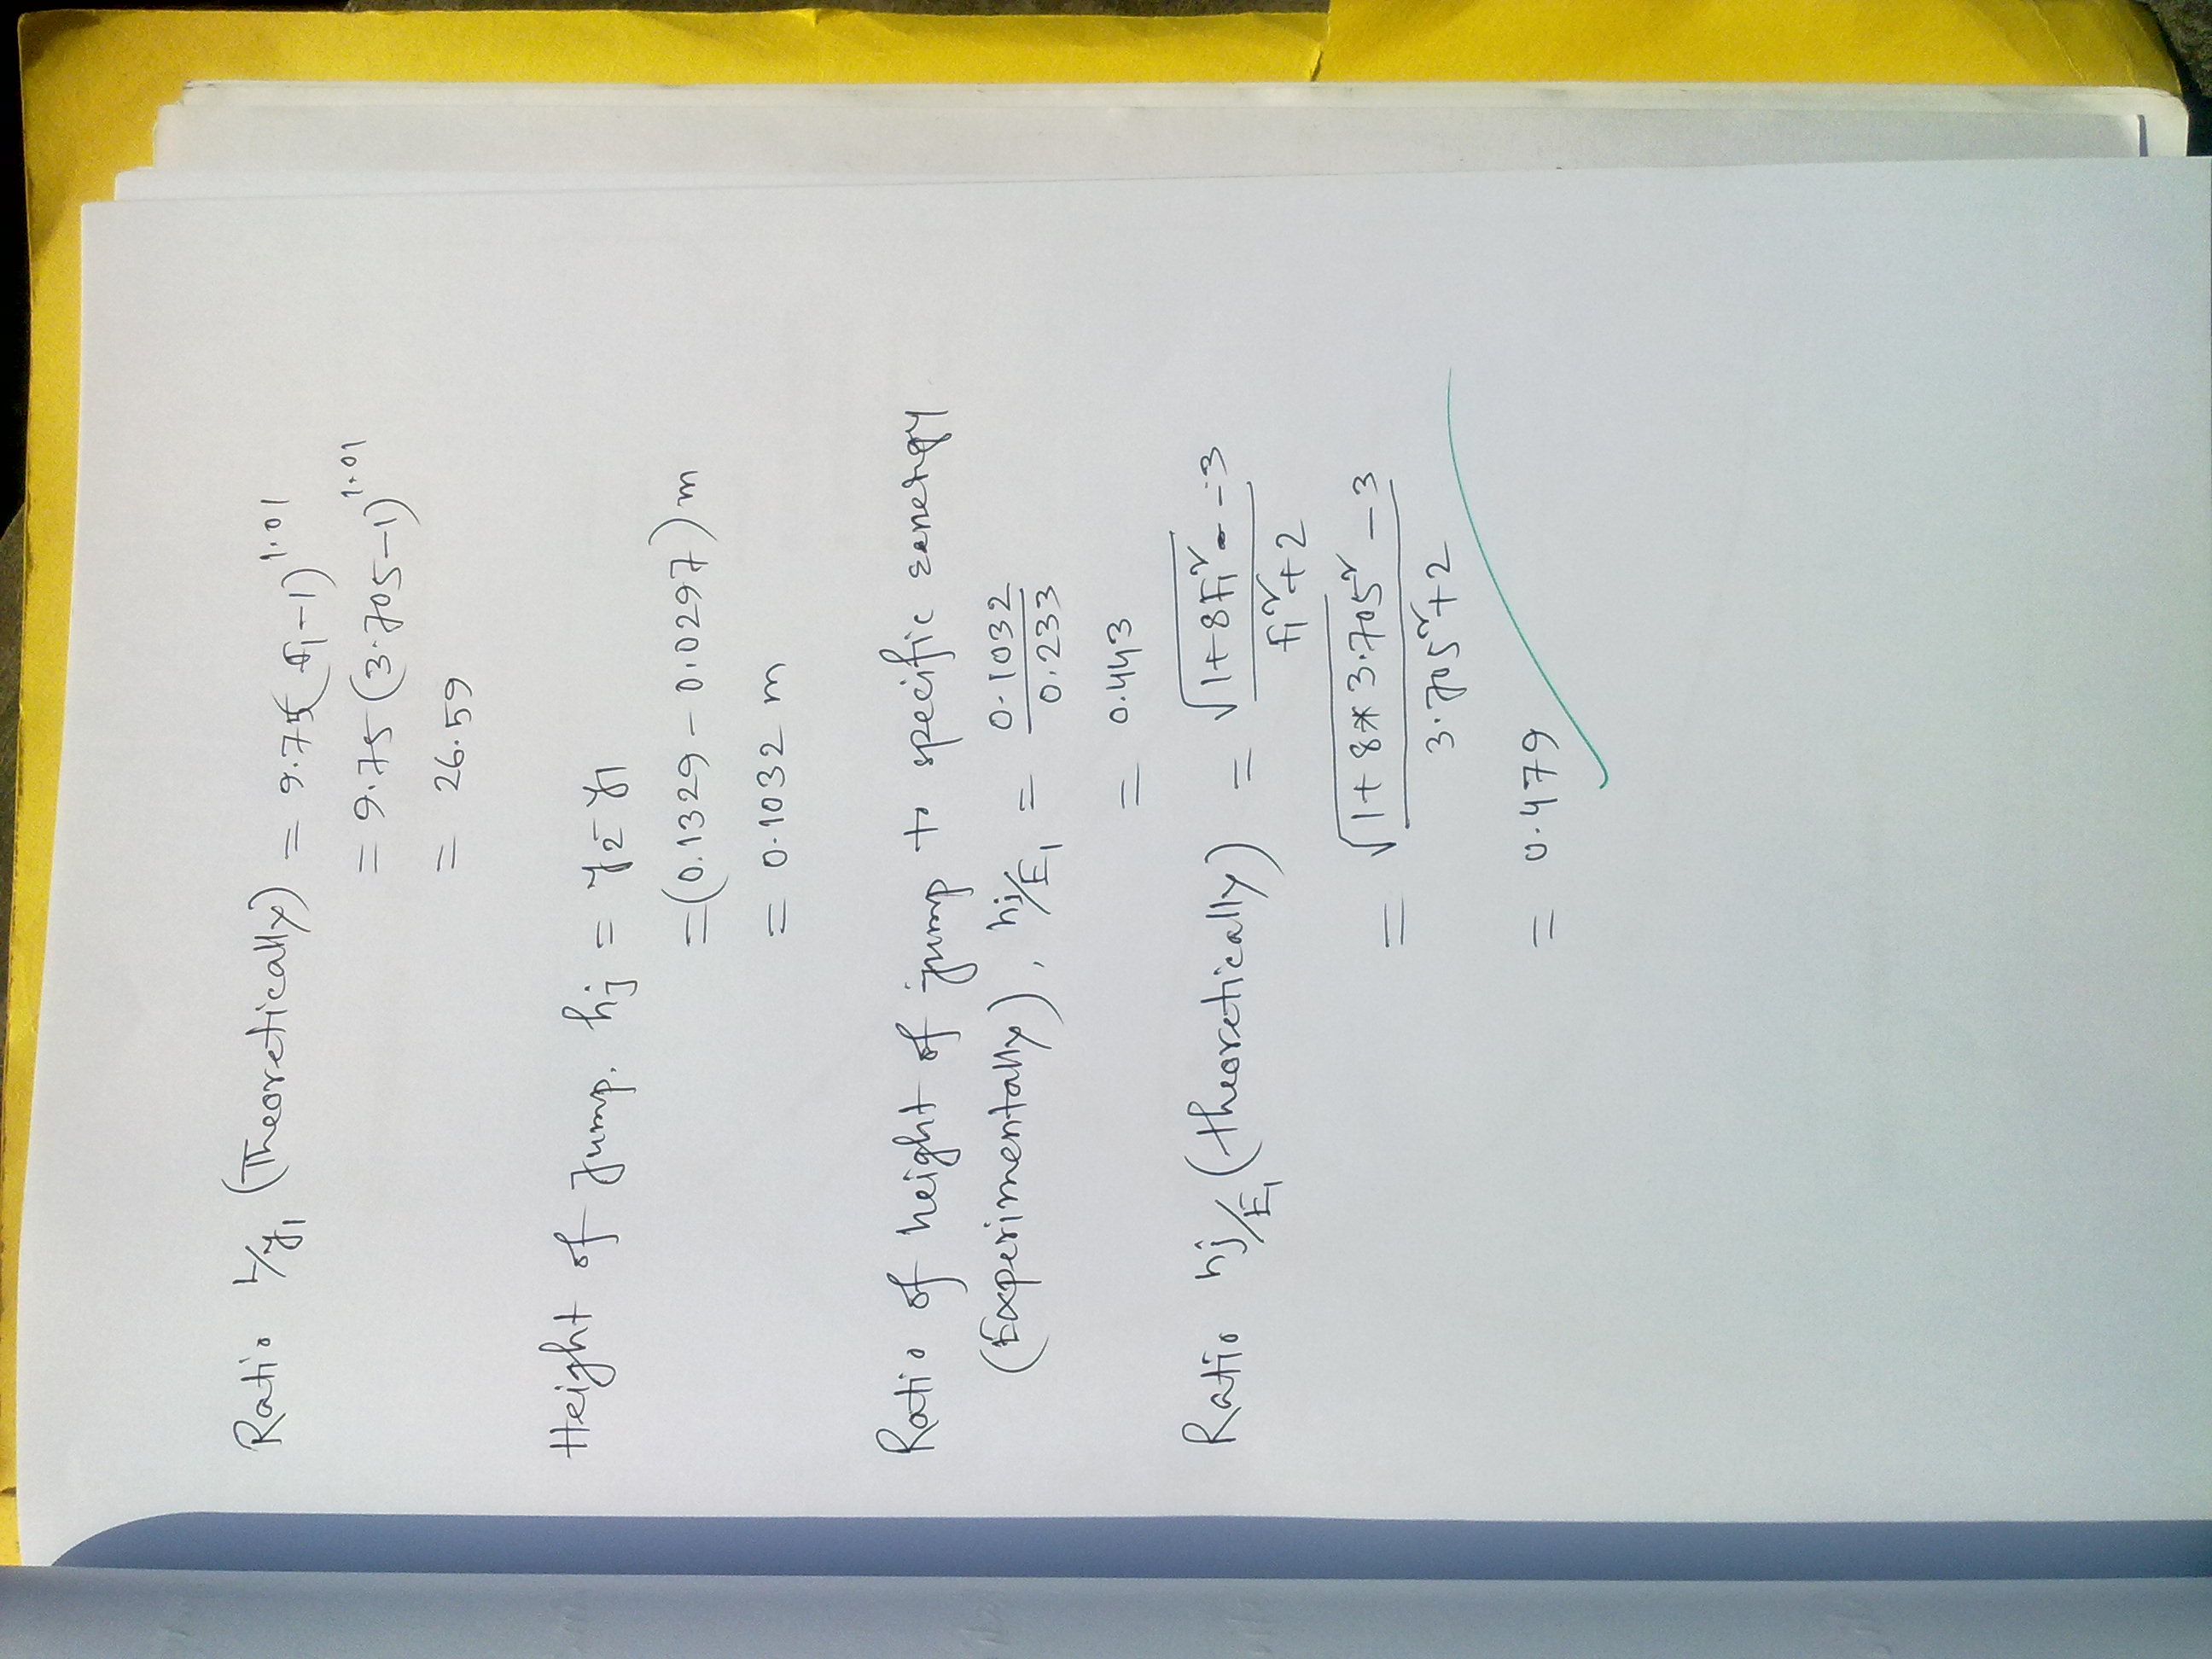 Ratio L/y1 (Theoretically) = 9.75(F1-1)^1.01
= 9.75(3.705-1)^1.01
= 26.59
Height of Jump, hj = y2-y1
=(0.1329-0.0297)m
= 0.1032 m
Ratio of height of jump to specific eenergy
(Experimentally), hj/E1 = 0.1032/0.233
= 0.443
Ratio hj/E1 (theoretically) = √(1+8F1²) -3 / F1²+2
= √(1+8*3.705²) -3 / 3.705²+2
= 0.479